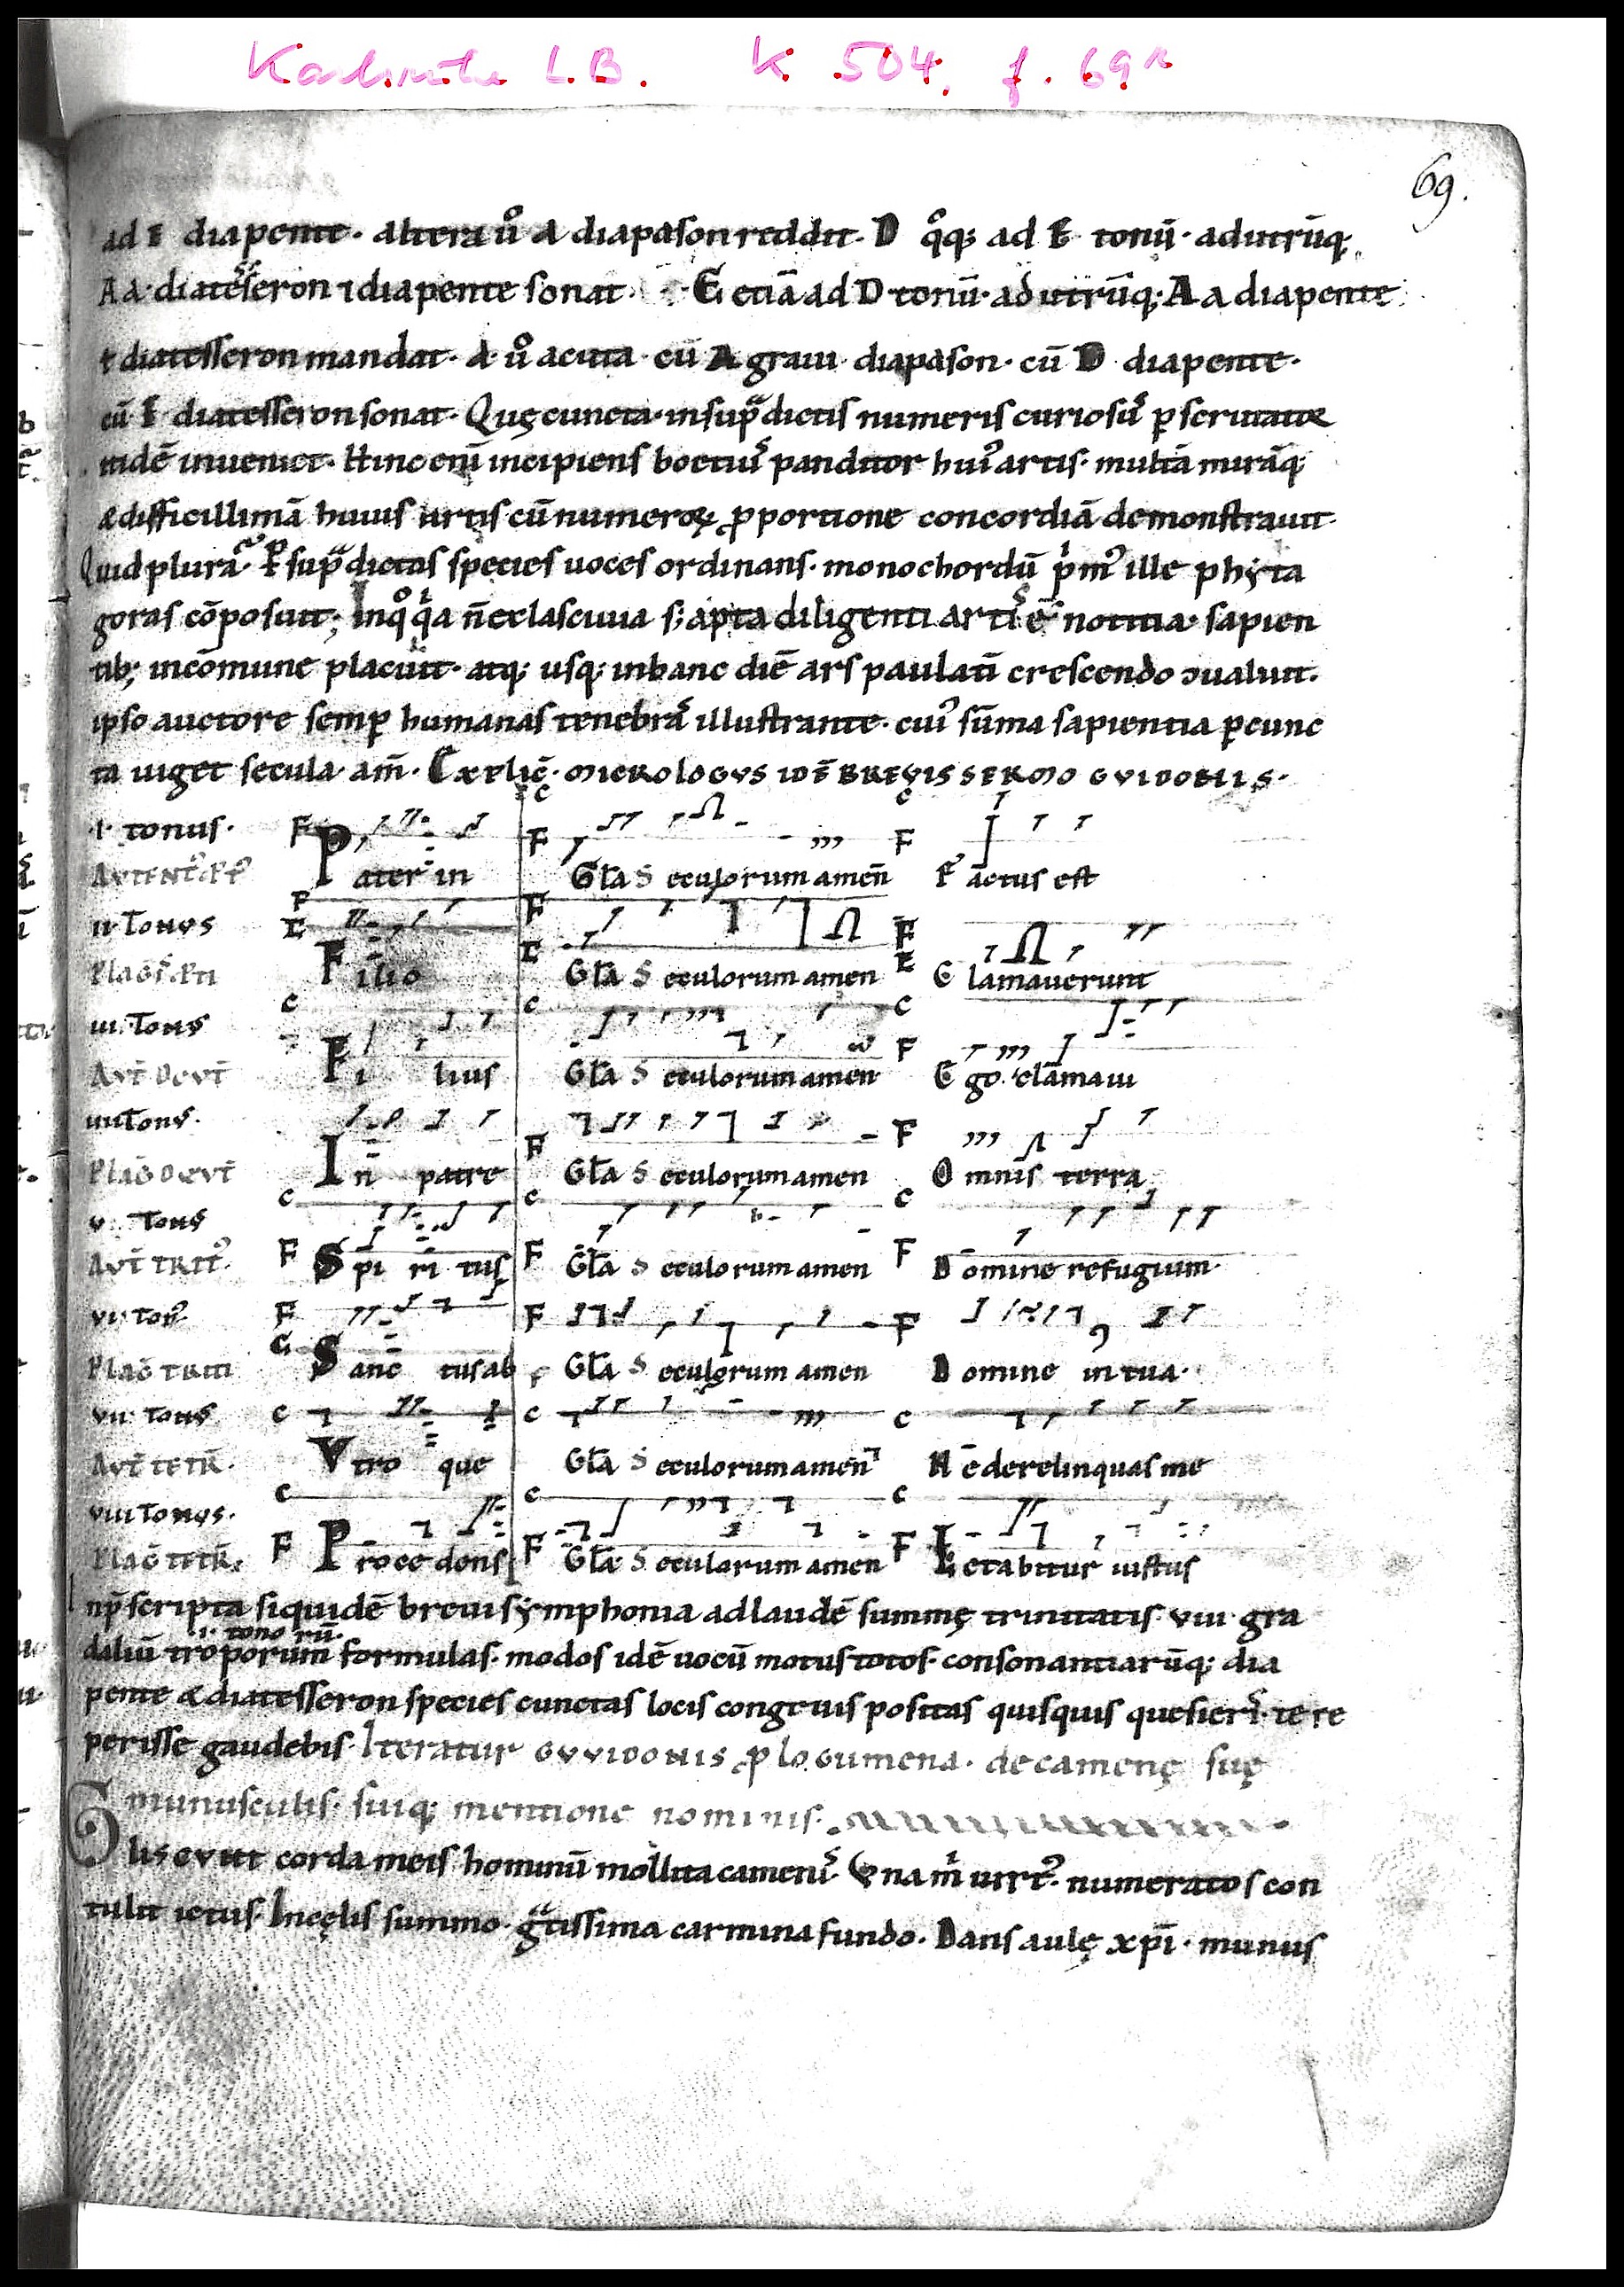 Karlsruhe L.B. K 504, f. 69r
69.
ad E diapente. altera ů a diapason reddit. D q̊q; ad E tonū. ad utrūq;
A a. diatesseron ⁊ diapente sonat. E etiā ad D tonū. ad utrūq; A a diapente
⁊ diatesseron mandat. a. ů acuta cū A graui diapason. cū D diapente.
cū E diatesseron sonat. Quę cuncta. in sup̄dictis numeris curiosus pscrutator
itidē inueniet. Hinc enī incipiens boetius panditor hui' artis. multā mirāq;
& difficillimā huius artis cū numeroꝝ ꝓportione concordiā demonstrauit.
Quid plura. P sup̄dictas species uoces ordinans. monochordū p̄m' ille phyta
goras cōposuit; In q̊ q̇a n̄ est lasciuia s; apta diligenti artis ē notitia. sapien
tib; in cōmune placuit. atq; usq; in hanc diē ars paulatī crescendo ↄualuit.
ipso auctore semp humanas tenebras illustrante. cui' sūma sapientia p cunc
ta uiget secula am̄. Explic̄. MICROLOGVS IDĒ BREVIS SERMO GVIDONIS.
.I. tonus. F F c F c
AVTENT' PT' Pater in Gl̄a Seculorum amen̄ Factus est
II. Tonus F E F E F E
PLAGI. PTI Filio Gl̄a Seculorum amen Clamauerunt
III. Tonus c c c F
AVT̄ DEVT̄ Filius Gl̄a Seculorum amen Ego clamaui
IIII Tonus. F F
PLAḠ DEVT̄ In patre Gl̄a Seculorum amen Omnis terra
V. Tonus c c c
AVT̄ TRIT'. F Spiritus F Gl̄a Seculorum amen F Domine refugium.
VI. Ton' F F F
PLAḠ TRITI G Sanctus ab F Gl̄a Seculorum amen Domine in tua.
VII. Tonus c c c
AVT̄ TETR̄. Vtroque Gl̄a Seculorum amen Ne derelinquas me
VIII Tonus. c c c
PLAḠ TETR̄. F Procedens F Gl̄a Seculorum amen F Letabitur iustus
Inp̄scripta siquidē breui symphonia ad laudē summę trinitatis. VIII. gra
.i. tonorū.
daliū troporum formulas. modos idē uocū motus totos. consonantiarūq; dia
pente & diatesseron species cunctas locis congruis positas quisquis quesieris. te re
perisse gaudebis. Iteratur GVVIDONIS ꝓlogumena. de camenę suę
munusculis. suiq; mentione nominis.
Gliscunt corda meis hominū mollita camenis. Vna m̄ uirt'. numeratos con
tulit ictus. In cęlis summo. gratissima carmina fundo. Dans aulę xpī. munus